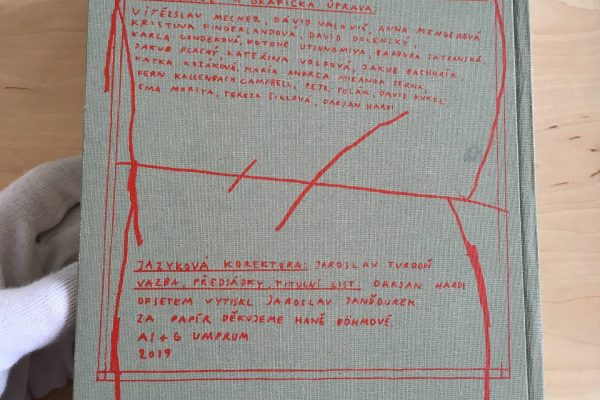 A GRAFICKÁ ÚPRAVA:
VÍTĚZSLAV MECNER, DAVID VALOVIČ, ANNA MENGEROVÁ
KRISTINA FINGERLANDOVÁ, DAVID DOLENSKÝ,
KARLA GONDEKOVÁ, KOTONE UTSUNOMIYA, BARBORA SATRANSKÁ,
JAKUB PLACHÝ, KATEŘINA VOLFOVÁ, JAKUB BACHORÍK,
KATKA KOZÁKOVÁ, MARÍA ANDREA MIRANDA SERNA,
FERN KALLENBACH CAMPBELL, PETR POLÁK, DAVID KUKOL
EMA MORITA, TEREZA ŠIKLOVÁ, DARJAN HARDI
JAZYKOVÁ KOREKTURA: JAROSLAV TVRDOŇ
VAZBA, PŘEDSÁDKY, TITULNÍ LIST: DARJAN HARDI
OFSETEM VYTISKL JAROSLAV JANĎOUREK.
ZA PAPÍR DĚKUJEME HANĚ BÖHMOVÉ.
A1+G UMPRUM
2019